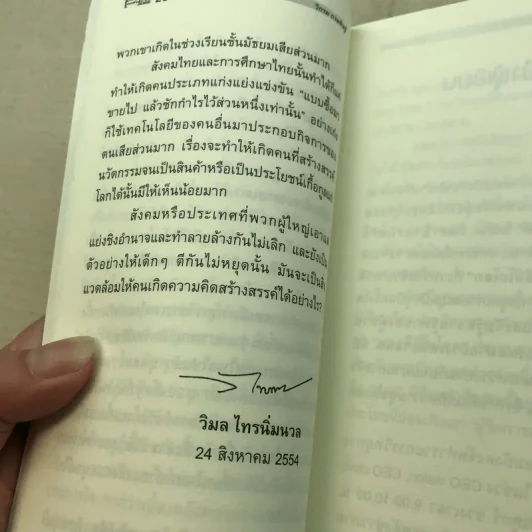 พวกเขาเกิดในช่วงเรียนชั้นมัธยมเสียส่วนมาก
สังคมไทยและการศึกษาไทยนั้นทำได้ก็แต่
ทำให้เกิดคนประเภทแก่งแย่งแข่งขัน “แบบซื้อมา
ขายไป แล้วชักกำไรไว้ส่วนหนึ่งเท่านั้น” อย่างเก่ง
ก็ใช้เทคโนโลยีของคนอื่นมาประกอบกิจการของ
ตนเสียส่วนมาก เรื่องจะทำให้เกิดคนที่สร้างสรรค์
นวัตกรรมจนเป็นสินค้าหรือเป็นประโยชน์เกื้อกูลแก่
โลกได้นั้นมีให้เห็นน้อยมาก
สังคมหรือประเทศที่พวกผู้ใหญ่เอาแต่
แย่งชิงอำนาจและทำลายล้างกันไม่เลิก และยังเป็น
ตัวอย่างให้เด็กๆ ตีกันไม่หยุดนั้น มันจะเป็นสิ่ง
แวดล้อมให้คนเกิดความคิดสร้างสรรค์ได้อย่างไร?
วิมล ไทรนิ่มนวล
24 สิงหาคม 2554